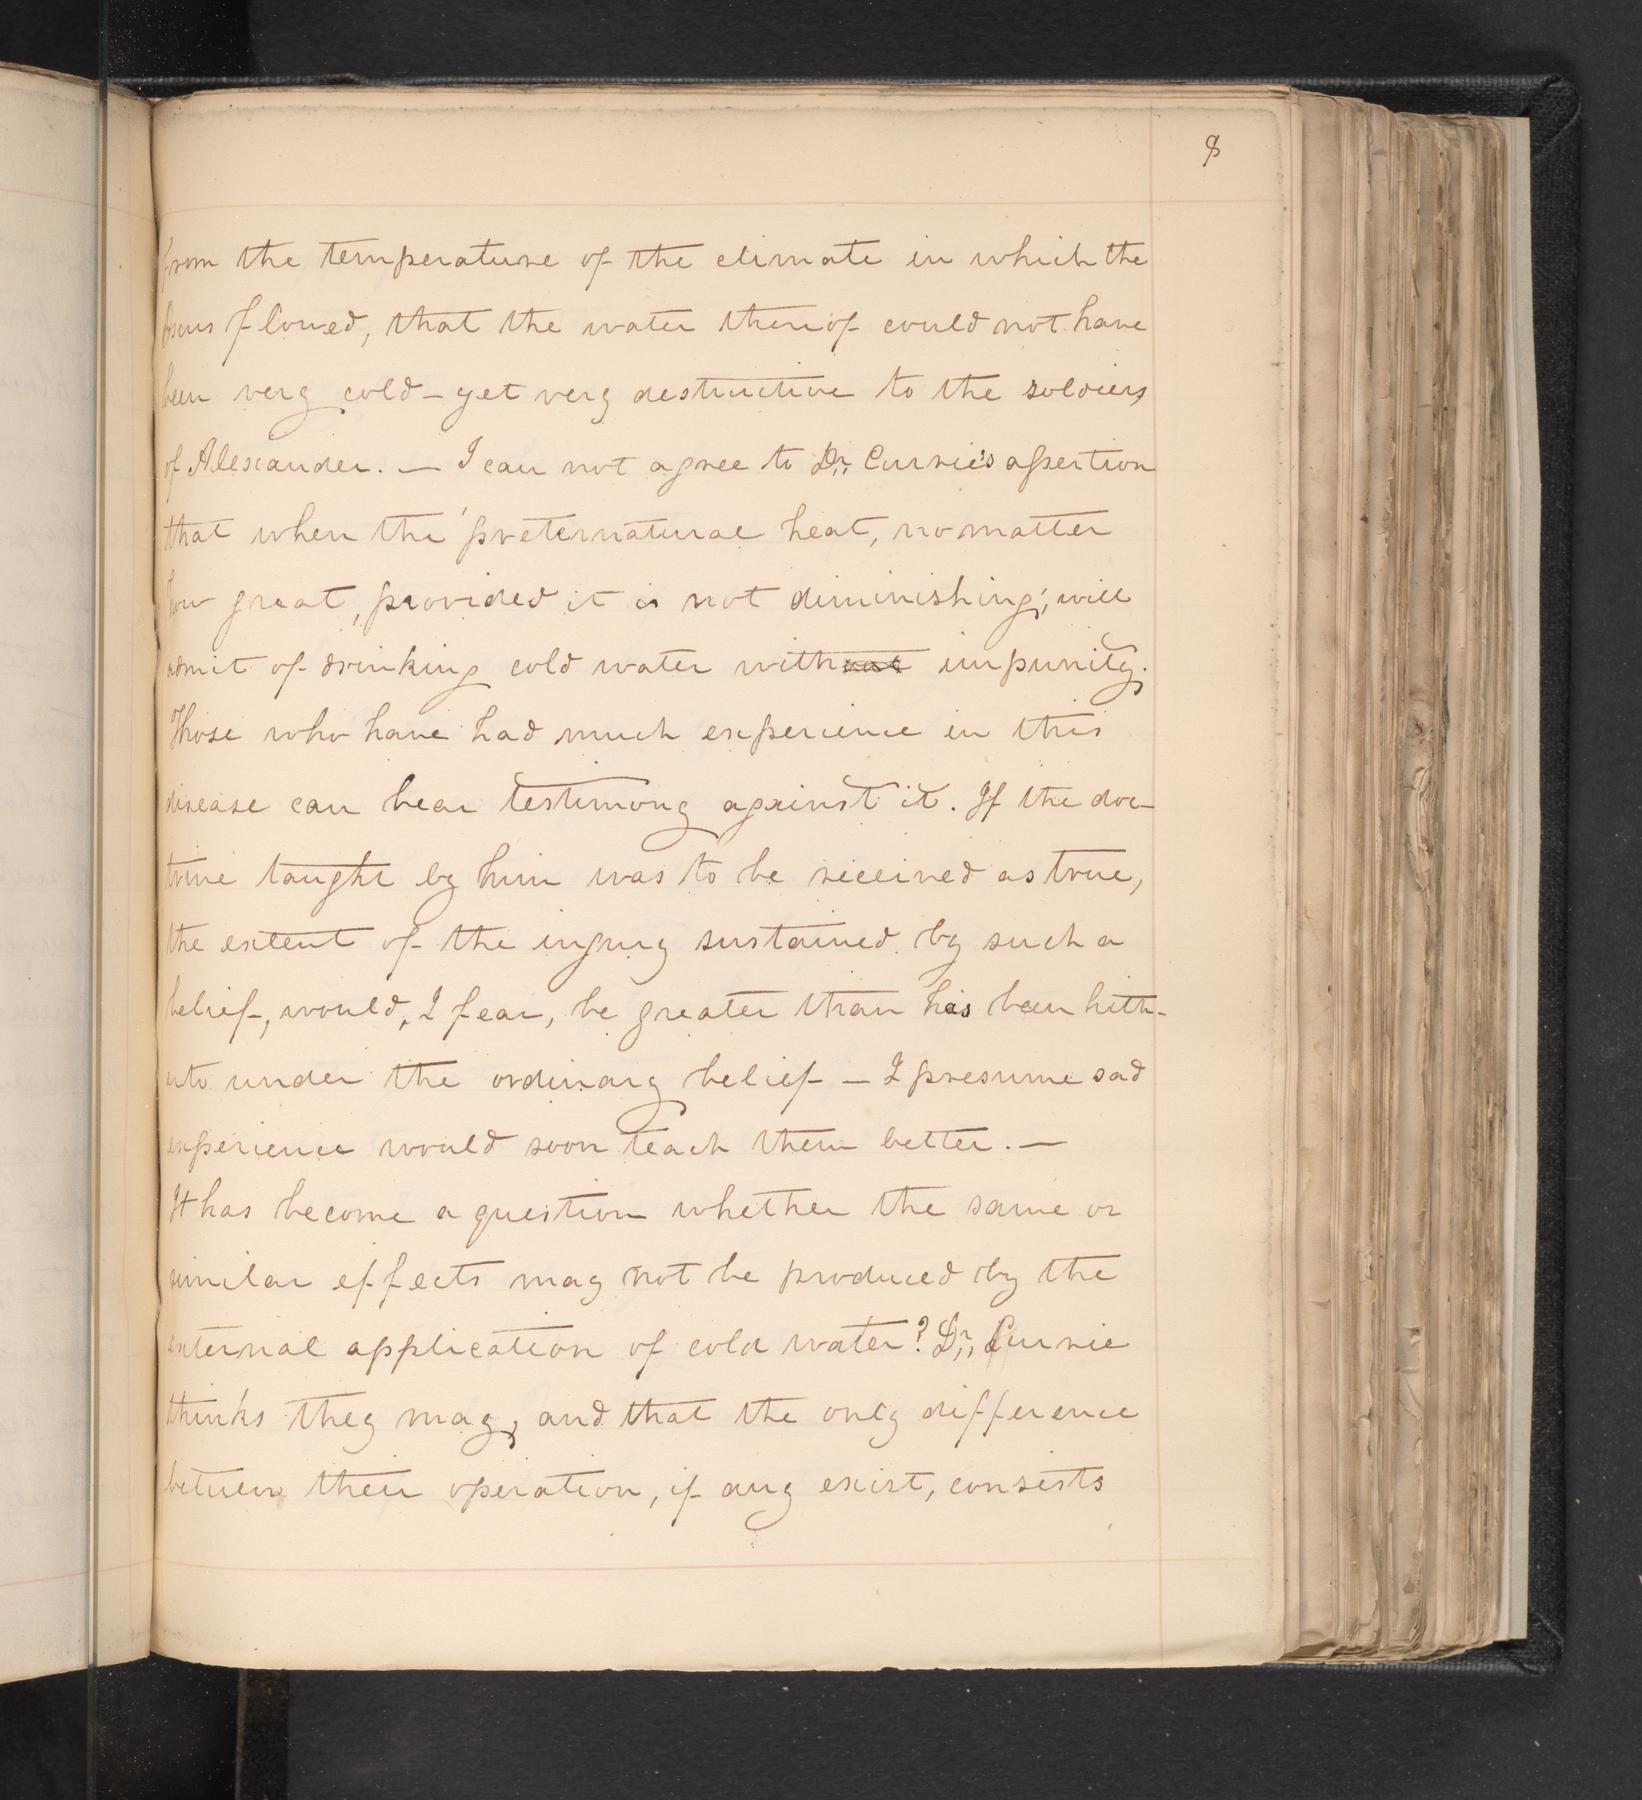 8
from the temperature of the climate in which the
Oxus flowed, that the water thereof could not have
been very cold – yet very destructive to the soldiers
of Alexander. — I can not agree to Dr,, Currie's assertion
that when the 'preternatural heat, no matter
how great, provided it is not diminishing;' will
admit of drinking cold water without impunity.
Those who have had much experience in this
disease can bear testimony against it. If the doc–
trine taught by him was to be received as true,
the extent of the injury sustained by such a
belief, would, I fear, be greater than has been hith–
erto under the ordinary belief – I presume sad
experience would soon teach them better. —
It has become a question whether the same or
similar effects may not be produced by the
external application of cold water? Dr,, Currie
thinks they may, and that the only difference
between their operation, if any exist, consists